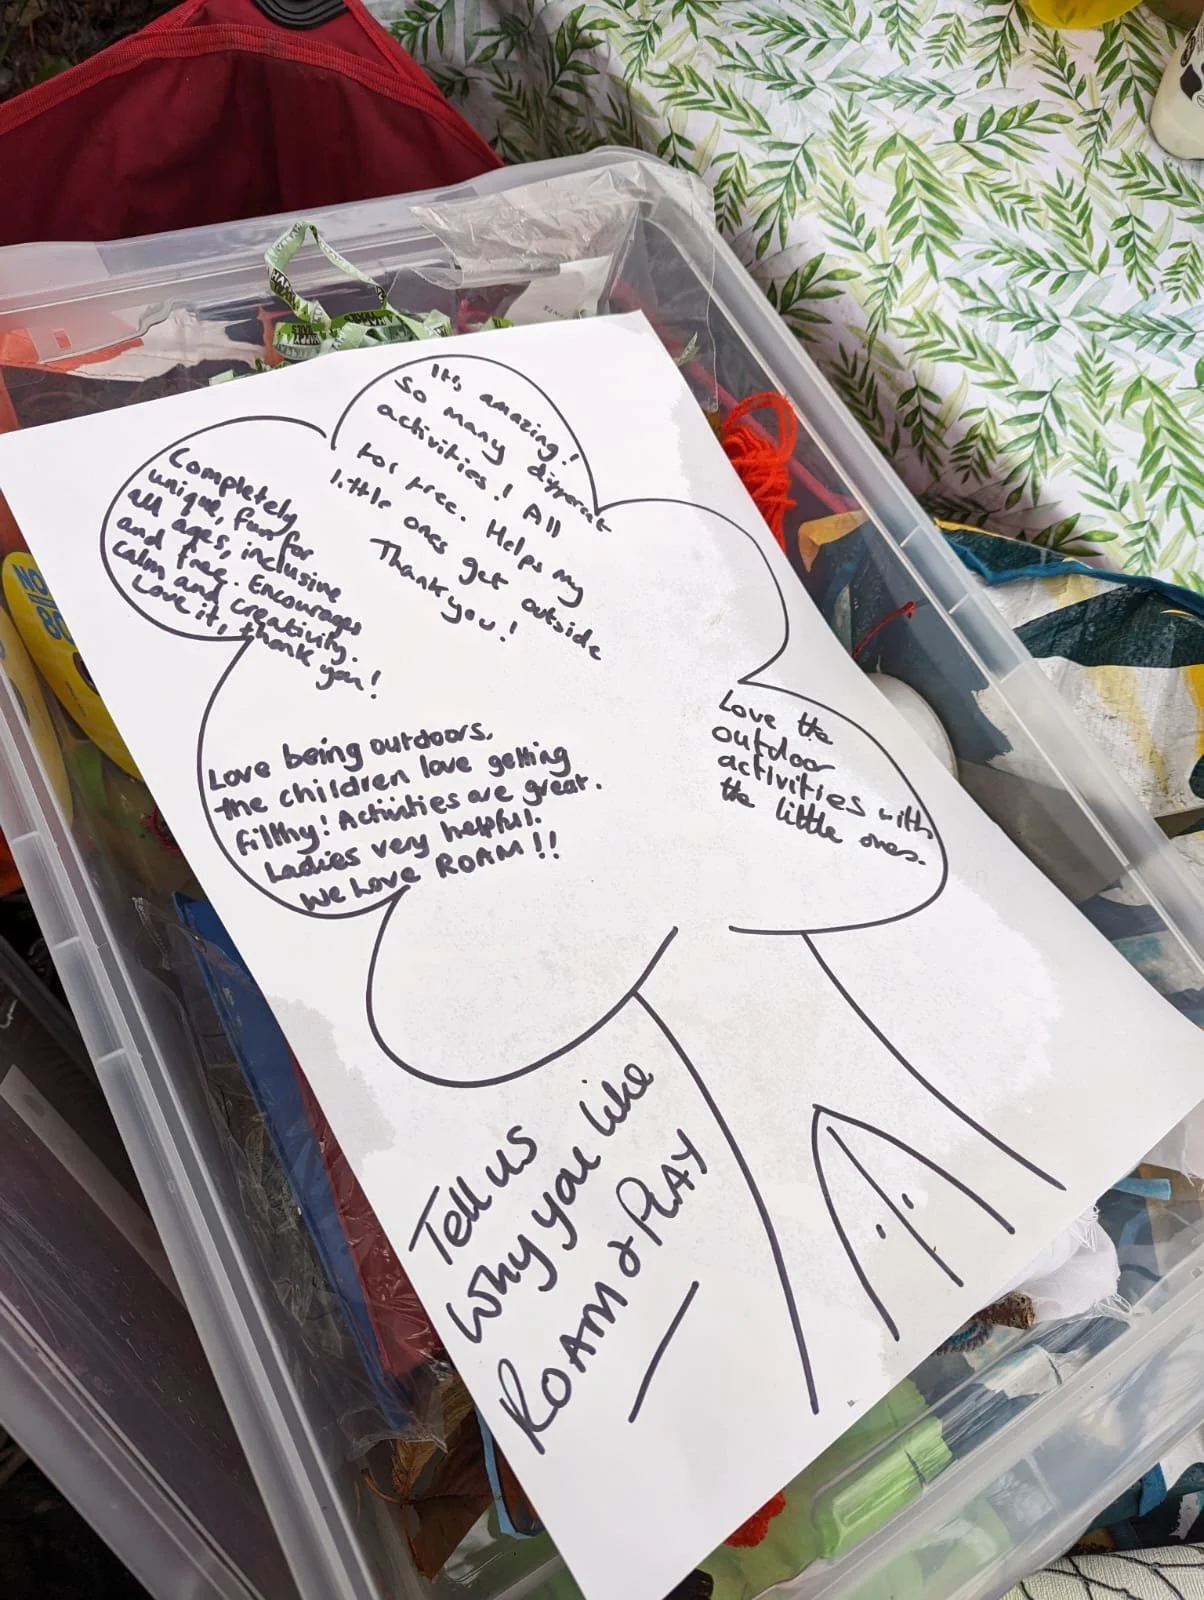 It's amazing!
So many different
activities! All
for free. Helps my
little ones get outside
Thank you!
Completely
unique, fun for
all ages, inclusive
and free. Encourages
calm and creativity.
Love it, thank
you!
Love being outdoors.
the children love getting
filthy! Activities are great.
Ladies very helpful.
We Love ROAM!!
Love the
outdoor
activities with
the little ones.
Tell us
Why you like
ROAM & PLAY
NO
80